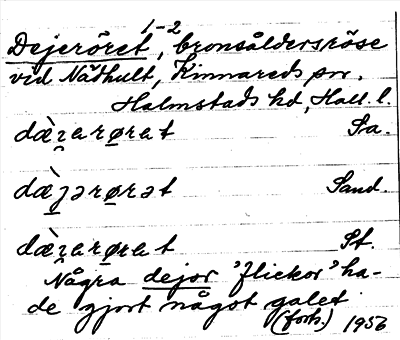 Dejeröret 1-2, bronsåldersröse
vid Nådhult, Kinnareds sn.
Halmstads hd, Hall. l.
dæ̀ɪarørat Sa.
dæ̀ȷərørət Sand.
dæ̀ɪarørat St.
Några dejor 'flickor' ha-
de gjort något galet
(forts.) 1956